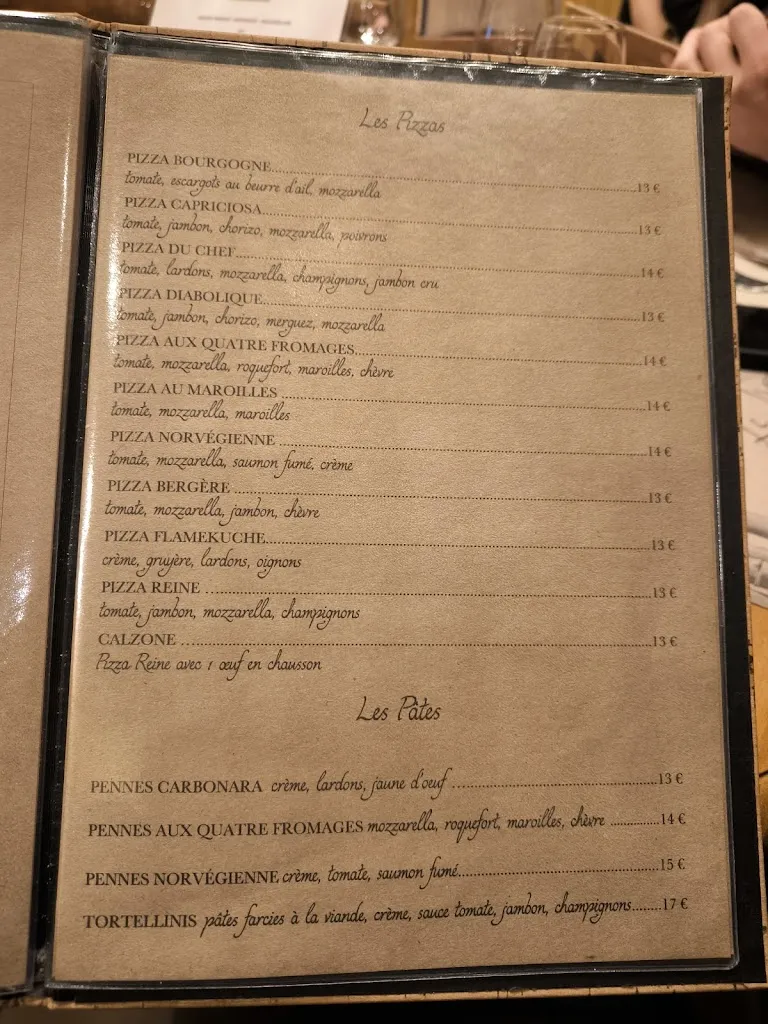 Les Pizzas
PIZZA BOURGOGNE..........13 €
tomate, escargots au beurre d'ail, mozzarella
PIZZA CAPRICIOSA..........13 €
tomate, jambon, chorizo, mozzarella, poivrons
PIZZA DU CHEF..........14 €
tomate, lardons, mozzarella, champignons, jambon cru
PIZZA DIABOLIQUE..........13 €
tomate, jambon, chorizo, merguez, mozzarella
PIZZA AUX QUATRE FROMAGES..........14 €
tomate, mozzarella, roquefort, maroilles, chèvre
PIZZA AU MAROILLES ..........14 €
tomate, mozzarella, maroilles
PIZZA NORVÉGIENNE ..........14 €
tomate, mozzarella, saumon fumé, crème
PIZZA BERGÈRE ..........13 €
tomate, mozzarella, jambon, chèvre
PIZZA FLAMEKUCHE..........13 €
crème, gruyère, lardons, oignons
PIZZA REINE ..........13 €
tomate, jambon, mozzarella, champignons
CALZONE ..........13 €
Pizza Reine avec 1 œuf en chausson
Les Pâtes
PENNES CARBONARA crème, lardons, jaune d'oeuf ..........13 €
PENNES AUX QUATRE FROMAGES mozzarella, roquefort, maroilles, chèvre ..........14 €
PENNES NORVÉGIENNE crème, tomate, saumon fumé..........15 €
TORTELLINIS pâtes farcies à la viande, crème, sauce tomate, jambon, champignons........17 €